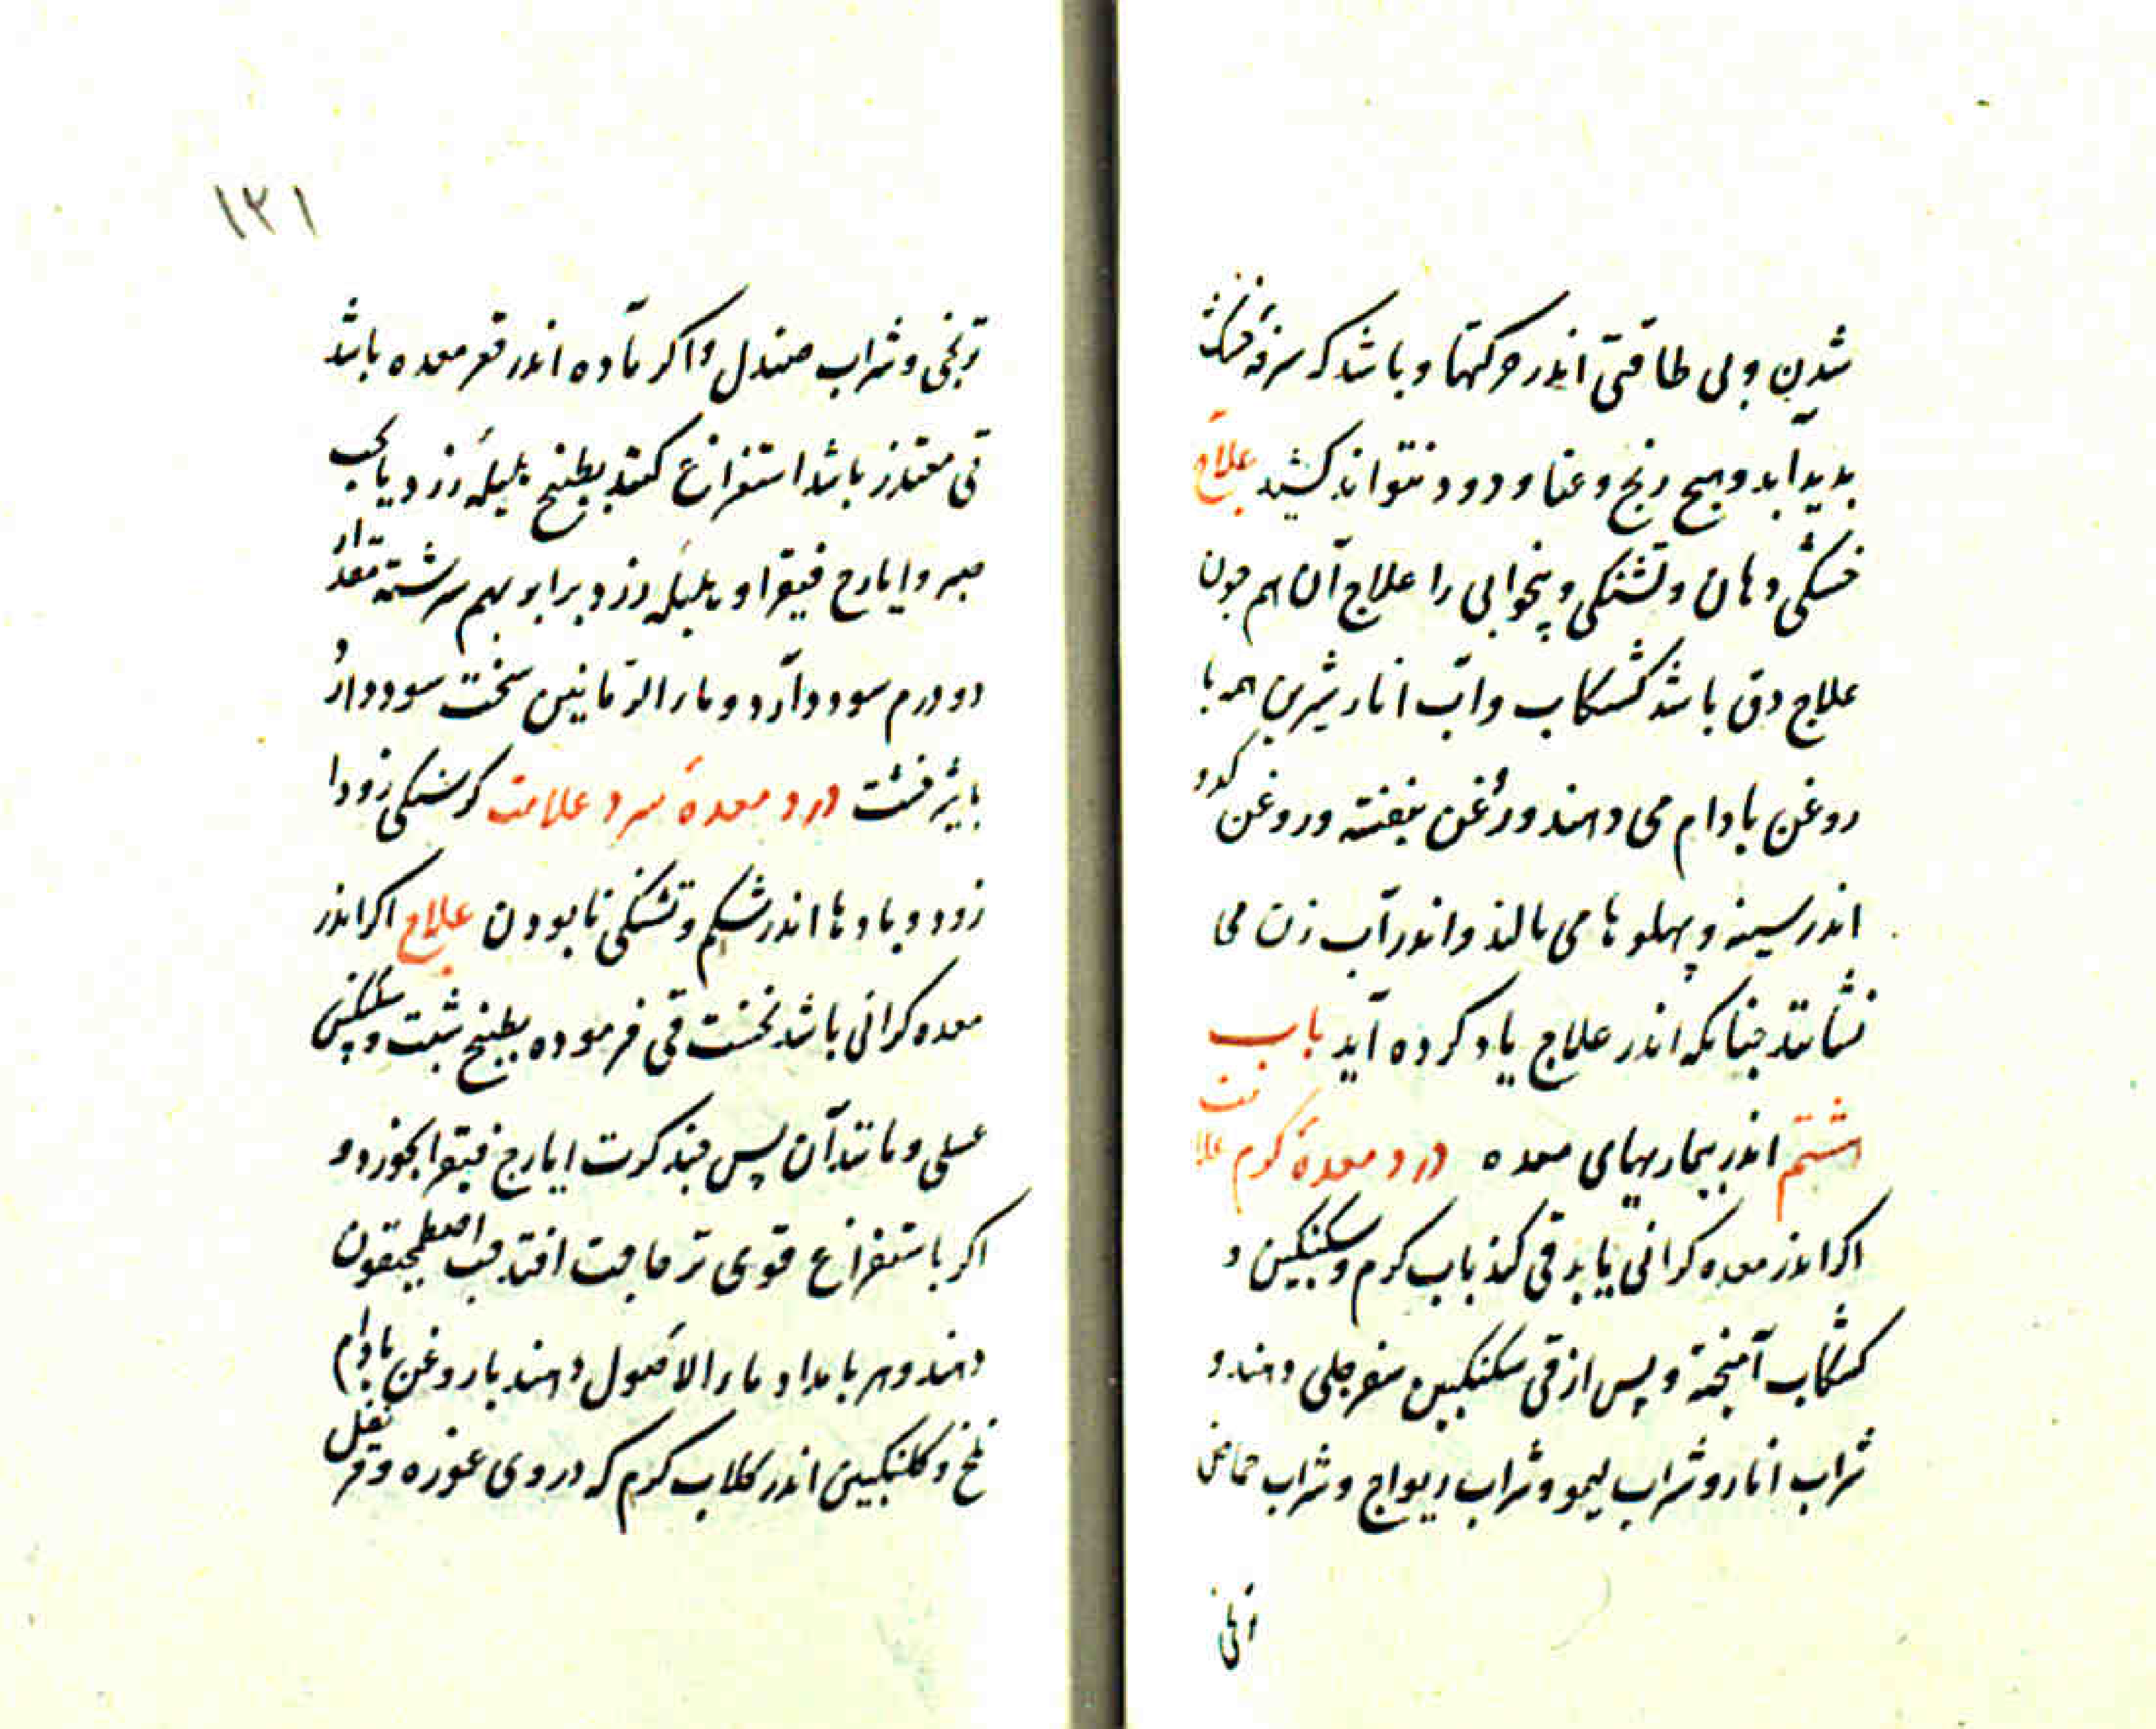 شدن و بی طاقتی اندر حرکتها و باشد که سرفه خشک
بدید آید و هیچ رنج و عنا و دود نتواند کشید علاج
خشکی دهان و تشنکی و بیخوابی را علاج آن هم جون
علاج دق باشد کشکاب و آب انار شیرین همه با
روغن بادام می دهند و روغن بنفشه و روغن کدو
اندر سینه و پهلوها می مالند و اندر آب زن می
نشانند جنانکه اندر علاج یاد کرده آید باب
هشتم اندر بیماریهای معده درد معدهٔ کرم علامت
اکر اندر معده کرانی یابد قی کند باب کرم و سکنکبین و
کشکاب آمیخته و پس از قی سکنکبین سفرجلی دهند و
شراب انار و شراب لیمو و شراب ریواج و شراب حماض
۱۳۱
ترنجی و شراب صندل و اکر ماده اندر قعر معده باشد
قی متعذر باشد استفراغ کنند بطبیخ هلیلهٔ زرد یا بحب
صبر و ایارج فیقرا و هلیلهٔ زرد برابر بهم سرشته مقدار
دو درم سود دارد و ماء الرمانین سخت سود دارد
درد معدهٔ سرد علامت کرسنکی زودا
زود و بادها اندر شکم و تشنکی نابودن علاج اکر اندر
معده کرانی باشد نخست قی فرموده بطبیخ شبت و سکنکبین
عسلی و مانند آن پس جند کرت ایارج فیقرا بخورد و
اکر باستفراغ قوی تر حاجت افتد حب اصطمخیقون
دهند و هر بامداد ماء الاصول دهند با روغن بادام
تلخ و کلنکبین اندر کلاب کرم که در وی عوره و قرنفل